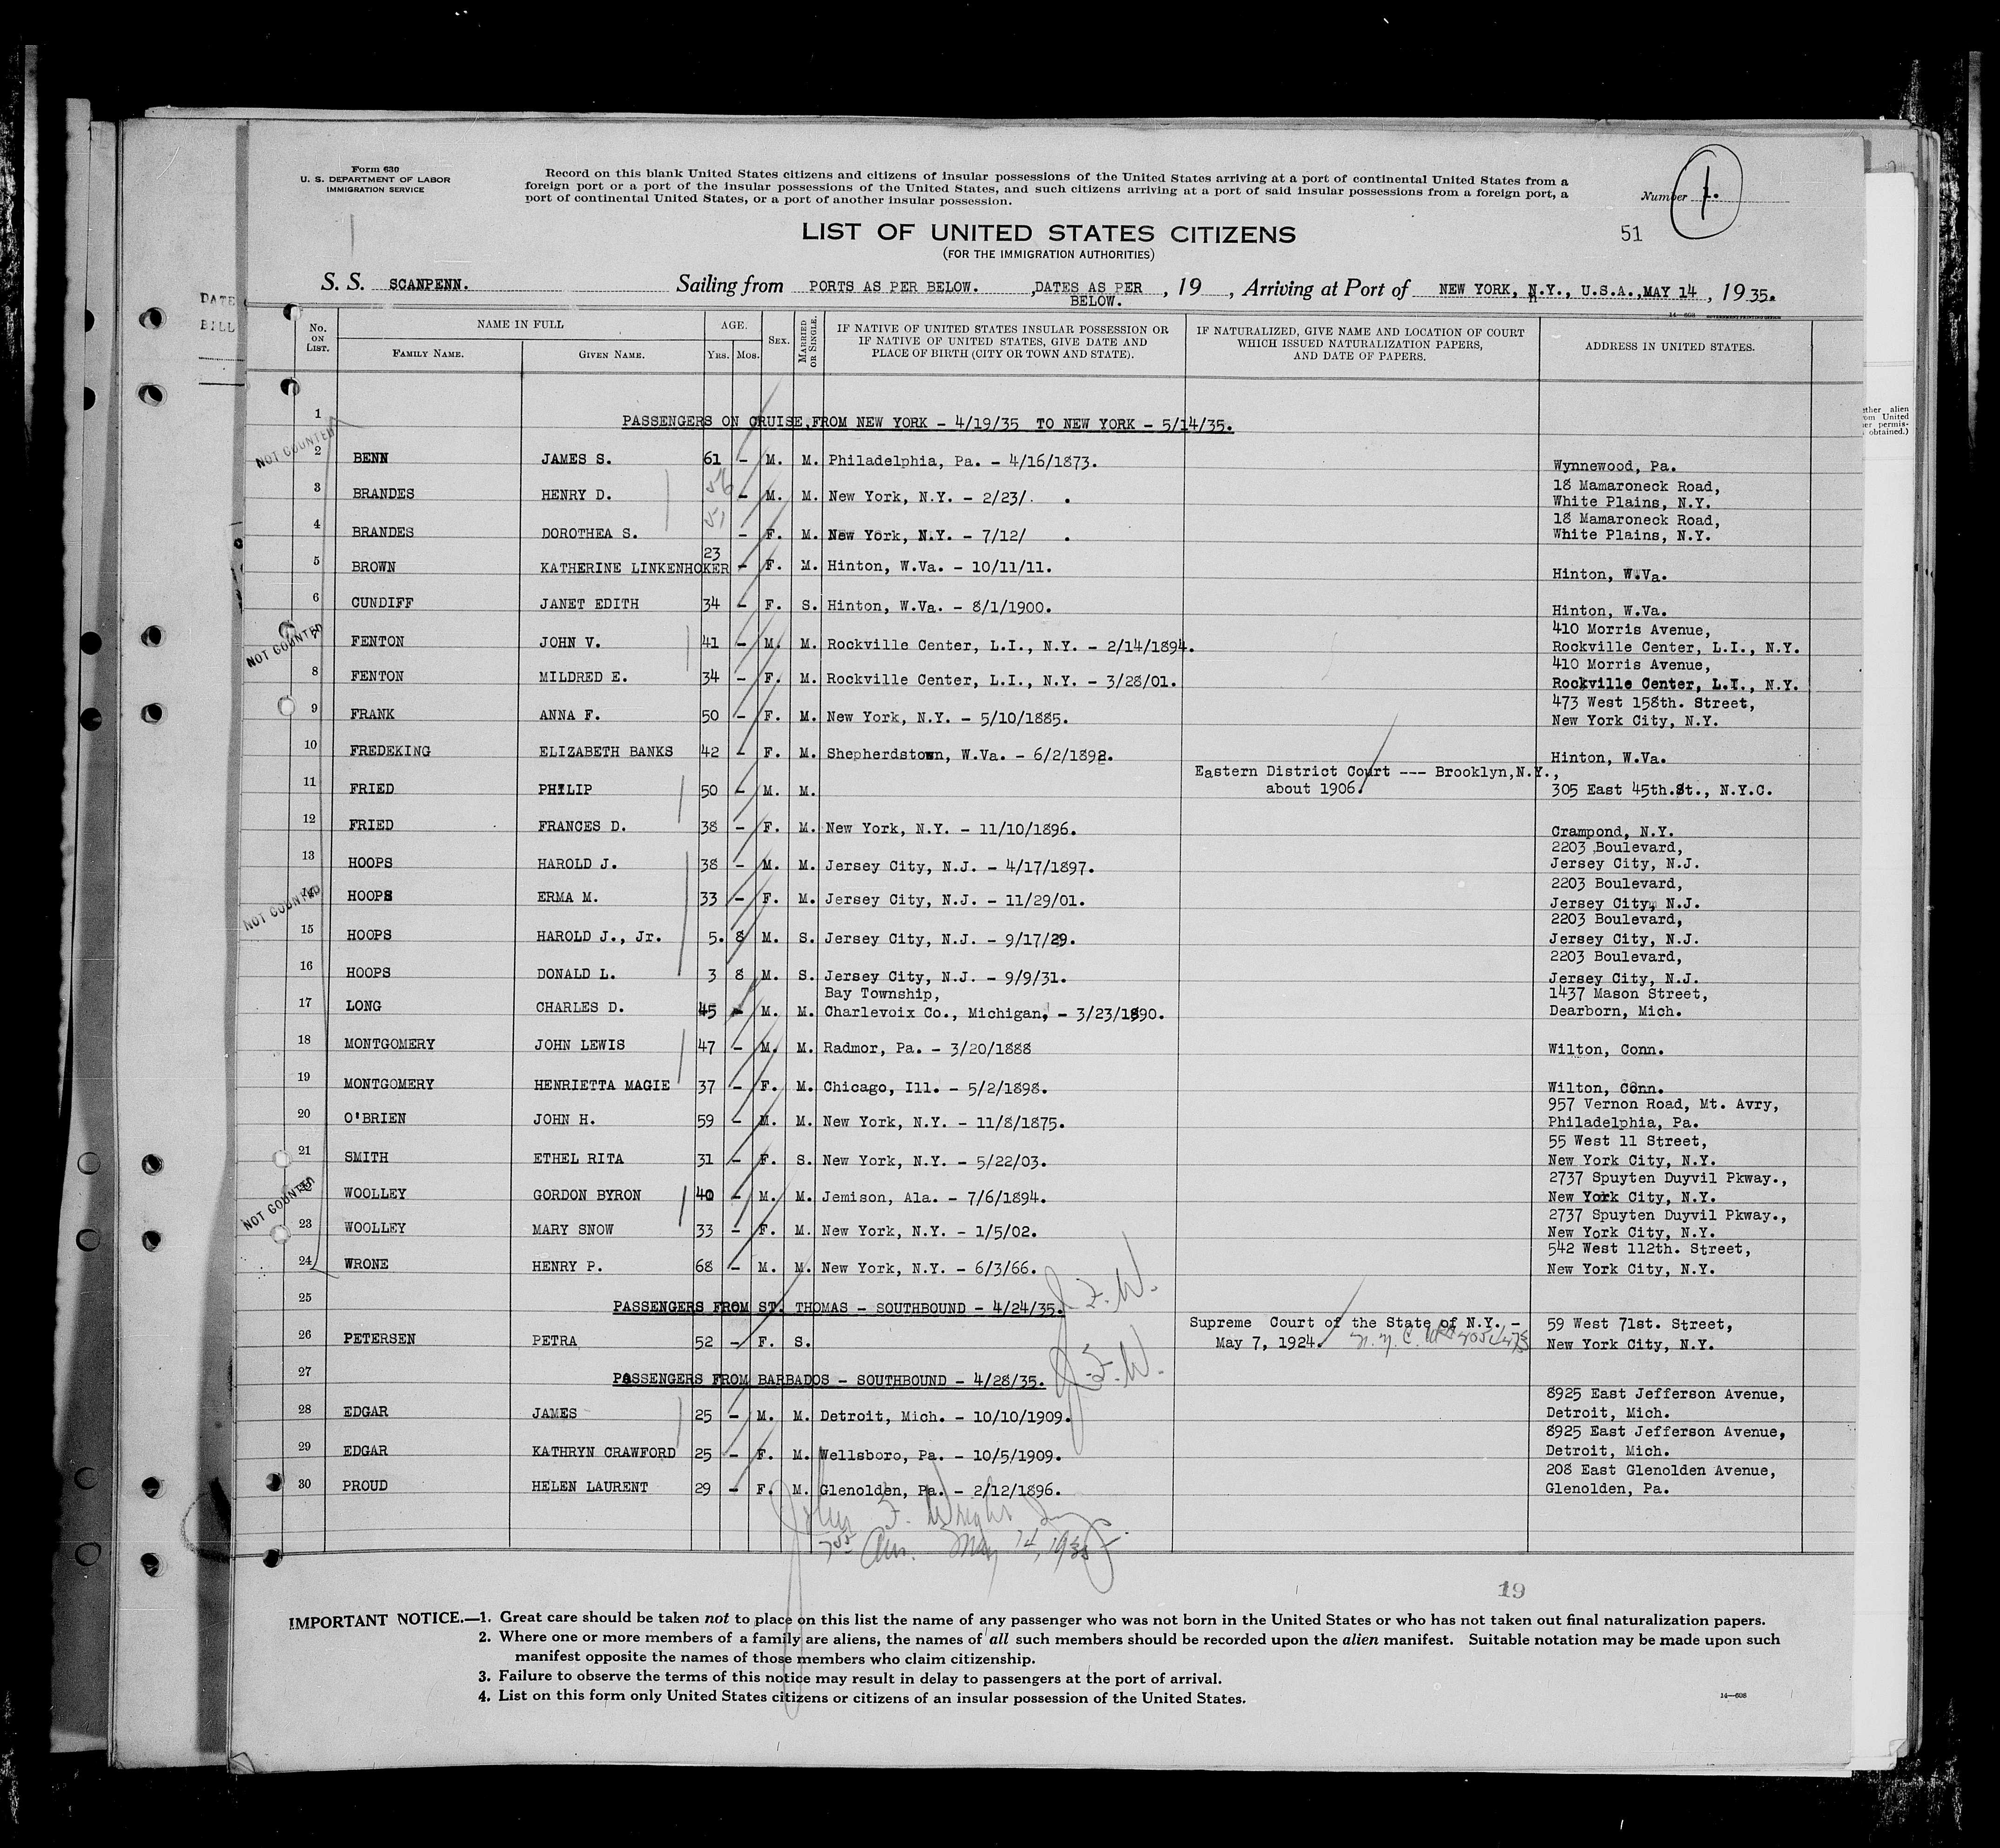 Form 630
U. S. DEPARTMENT OF LABOR
IMMIGRATION SERVICE
Record on this blank United States citizens and citizens of insular possessions of the United States arriving at a port of continental United States from a
foreign port or a port of the insular possessions of the United States, and such citizens arriving at a port of said insular possessions from a foreign port, a
port of continental United States, or a port of another insular possession.
Number 1.
LIST OF UNITED STATES CITIZENS
51
(FOR THE IMMIGRATION AUTHORITIES)
S. S. SCANPENN. Sailing from PORTS AS PER BELOW. , DATES AS PER BELOW. , 19 , Arriving at Port of NEW YORK, N.Y., U.S.A., MAY 14 , 1935.
DATE
BILL
No. ON LIST. NAME IN FULL AGE. SEX. MARRIED OR SINGLE. IF NATIVE OF UNITED STATES INSULAR POSSESSION OR IF NATIVE OF UNITED STATES, GIVE DATE AND PLACE OF BIRTH (CITY OR TOWN AND STATE). IF NATURALIZED, GIVE NAME AND LOCATION OF COURT WHICH ISSUED NATURALIZATION PAPERS, AND DATE OF PAPERS. ADDRESS IN UNITED STATES.
FAMILY NAME. GIVEN NAME. YRS. MOS.
1 PASSENGERS ON CRUISE FROM NEW YORK - 4/19/35 TO NEW YORK - 5/14/35.
NOT COUNTED
2 BENN JAMES S. 61 - M. M. Philadelphia, Pa. - 4/16/1873. Wynnewood, Pa.
3 BRANDES HENRY D. 56 - M. M. New York, N.Y. - 2/23/ . 18 Mamaroneck Road, White Plains, N.Y.
4 BRANDES DOROTHEA S. 51 - F. M. New York, N.Y. - 7/12/ . 18 Mamaroneck Road, White Plains, N.Y.
5 BROWN KATHERINE LINKENHOKER 23 - F. M. Hinton, W.Va. - 10/11/11. Hinton, W.Va.
6 CUNDIFF JANET EDITH 34 - F. S. Hinton, W.Va. - 8/1/1900. Hinton, W.Va.
NOT COUNTED
FENTON JOHN V. 41 - M. M. Rockville Center, L.I., N.Y. - 2/14/1894. 410 Morris Avenue, Rockville Center, L.I., N.Y.
8 FENTON MILDRED E. 34 - F. M. Rockville Center, L.I., N.Y. - 3/28/01. 410 Morris Avenue, Rockville Center, L.I., N.Y.
9 FRANK ANNA F. 50 - F. M. New York, N.Y. - 5/10/1885. 473 West 158th. Street, New York City, N.Y.
10 FREDEKING ELIZABETH BANKS 42 - F. M. Shepherdstown, W.Va. - 6/2/1892. Hinton, W.Va.
11 FRIED PHILIP 50 - M. M. Eastern District Court --- Brooklyn,N.Y., about 1906. 305 East 45th.St., N.Y.C.
12 FRIED FRANCES D. 38 - F. M. New York, N.Y. - 11/10/1896. Crampond, N.Y.
13 HOOPS HAROLD J. 38 - M. M. Jersey City, N.J. - 4/17/1897. 2203 Boulevard, Jersey City, N.J.
NOT COUNTED
14 HOOPS ERMA M. 33 - F. M. Jersey City, N.J. - 11/29/01. 2203 Boulevard, Jersey City, N.J.
15 HOOPS HAROLD J., Jr. 5. 8 M. S. Jersey City, N.J. - 9/17/29. 2203 Boulevard, Jersey City, N.J.
16 HOOPS DONALD L. 3 8 M. S. Jersey City, N.J. - 9/9/31. 2203 Boulevard, Jersey City, N.J.
17 LONG CHARLES D. 45 - M. M. Bay Township, Charlevoix Co., Michigan, - 3/23/1890. 1437 Mason Street, Dearborn, Mich.
18 MONTGOMERY JOHN LEWIS 47 - M. M. Radmor, Pa. - 3/20/1888 Wilton, Conn.
19 MONTGOMERY HENRIETTA MAGIE 37 - F. M. Chicago, Ill. - 5/2/1898. Wilton, Conn.
20 O'BRIEN JOHN H. 59 - M. M. New York, N.Y. - 11/8/1875. 957 Vernon Road, Mt. Avry, Philadelphia, Pa.
21 SMITH ETHEL RITA 31 - F. S. New York, N.Y. - 5/22/03. 55 West 11 Street, New York City, N.Y.
NOT COUNTED
WOOLLEY GORDON BYRON 40 - M. M. Jemison, Ala. - 7/6/1894. 2737 Spuyten Duyvil Pkway., New York City, N.Y.
23 WOOLLEY MARY SNOW 33 - F. M. New York, N.Y. - 1/5/02. 2737 Spuyten Duyvil Pkway., New York City, N.Y.
24 WRONE HENRY P. 68 - M. M. New York, N.Y. - 6/3/66. 542 West 112th. Street, New York City, N.Y.
25 PASSENGERS FROM ST. THOMAS - SOUTHBOUND - 4/24/35. J.F.W.
26 PETERSEN PETRA 52 - F. S. Supreme Court of the State of N.Y. - May 7, 1924. N.Y.C. 59 West 71st. Street, New York City, N.Y.
27 PASSENGERS FROM BARBADOS - SOUTHBOUND - 4/28/35. J.F.W.
28 EDGAR JAMES 25 - M. M. Detroit, Mich. - 10/10/1909. 8925 East Jefferson Avenue, Detroit, Mich.
29 EDGAR KATHRYN CRAWFORD 25 - F. M. Wellsboro, Pa. - 10/5/1909. 8925 East Jefferson Avenue, Detroit, Mich.
30 PROUD HELEN LAURENT 29 - F. M. Glenolden, Pa. - 2/12/1896. 208 East Glenolden Avenue, Glenolden, Pa.
F. Wright
May 14, 1935
19
IMPORTANT NOTICE.—1. Great care should be taken not to place on this list the name of any passenger who was not born in the United States or who has not taken out final naturalization papers.
2. Where one or more members of a family are aliens, the names of all such members should be recorded upon the alien manifest. Suitable notation may be made upon such
manifest opposite the names of those members who claim citizenship.
3. Failure to observe the terms of this notice may result in delay to passengers at the port of arrival.
4. List on this form only United States citizens or citizens of an insular possession of the United States.
14—608